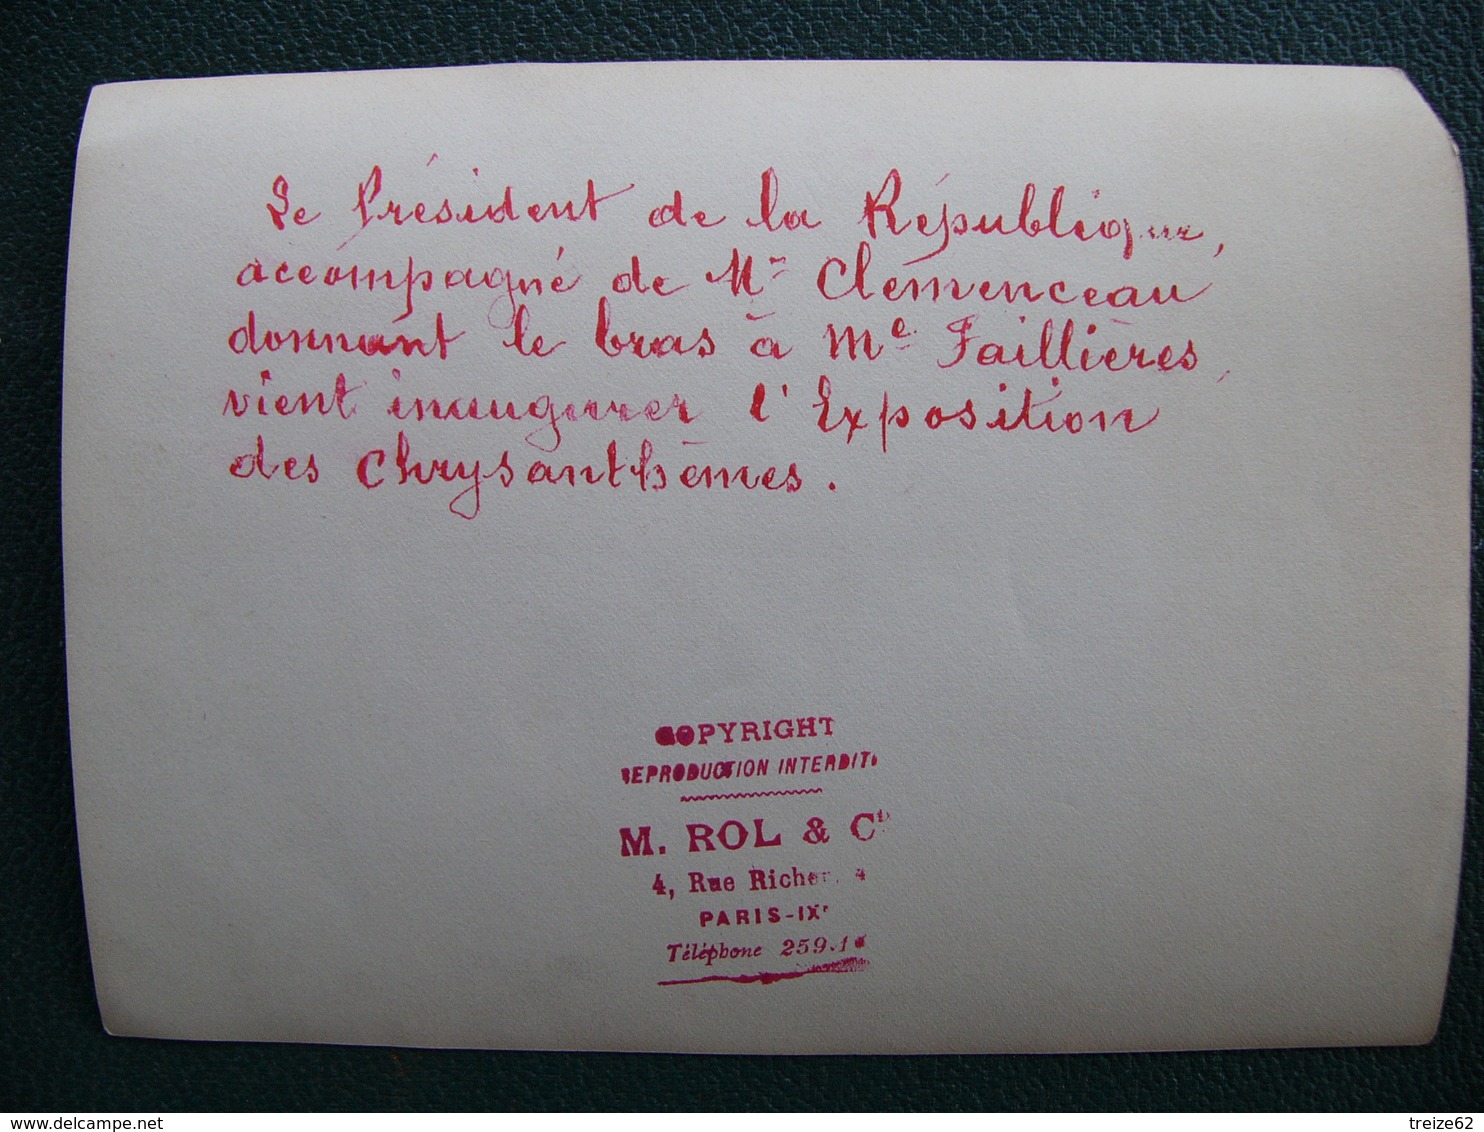 Le Président de la République,
accompagné de Mr Clémenceau
donnant le bras à Me Faillières,
vient inaugurer l'Exposition
des Chrysanthèmes.
COPYRIGHT
REPRODUCTION INTERDITE
M. ROL & Cie
4, Rue Richer, 4
PARIS-IXe
Téléphone
treize62